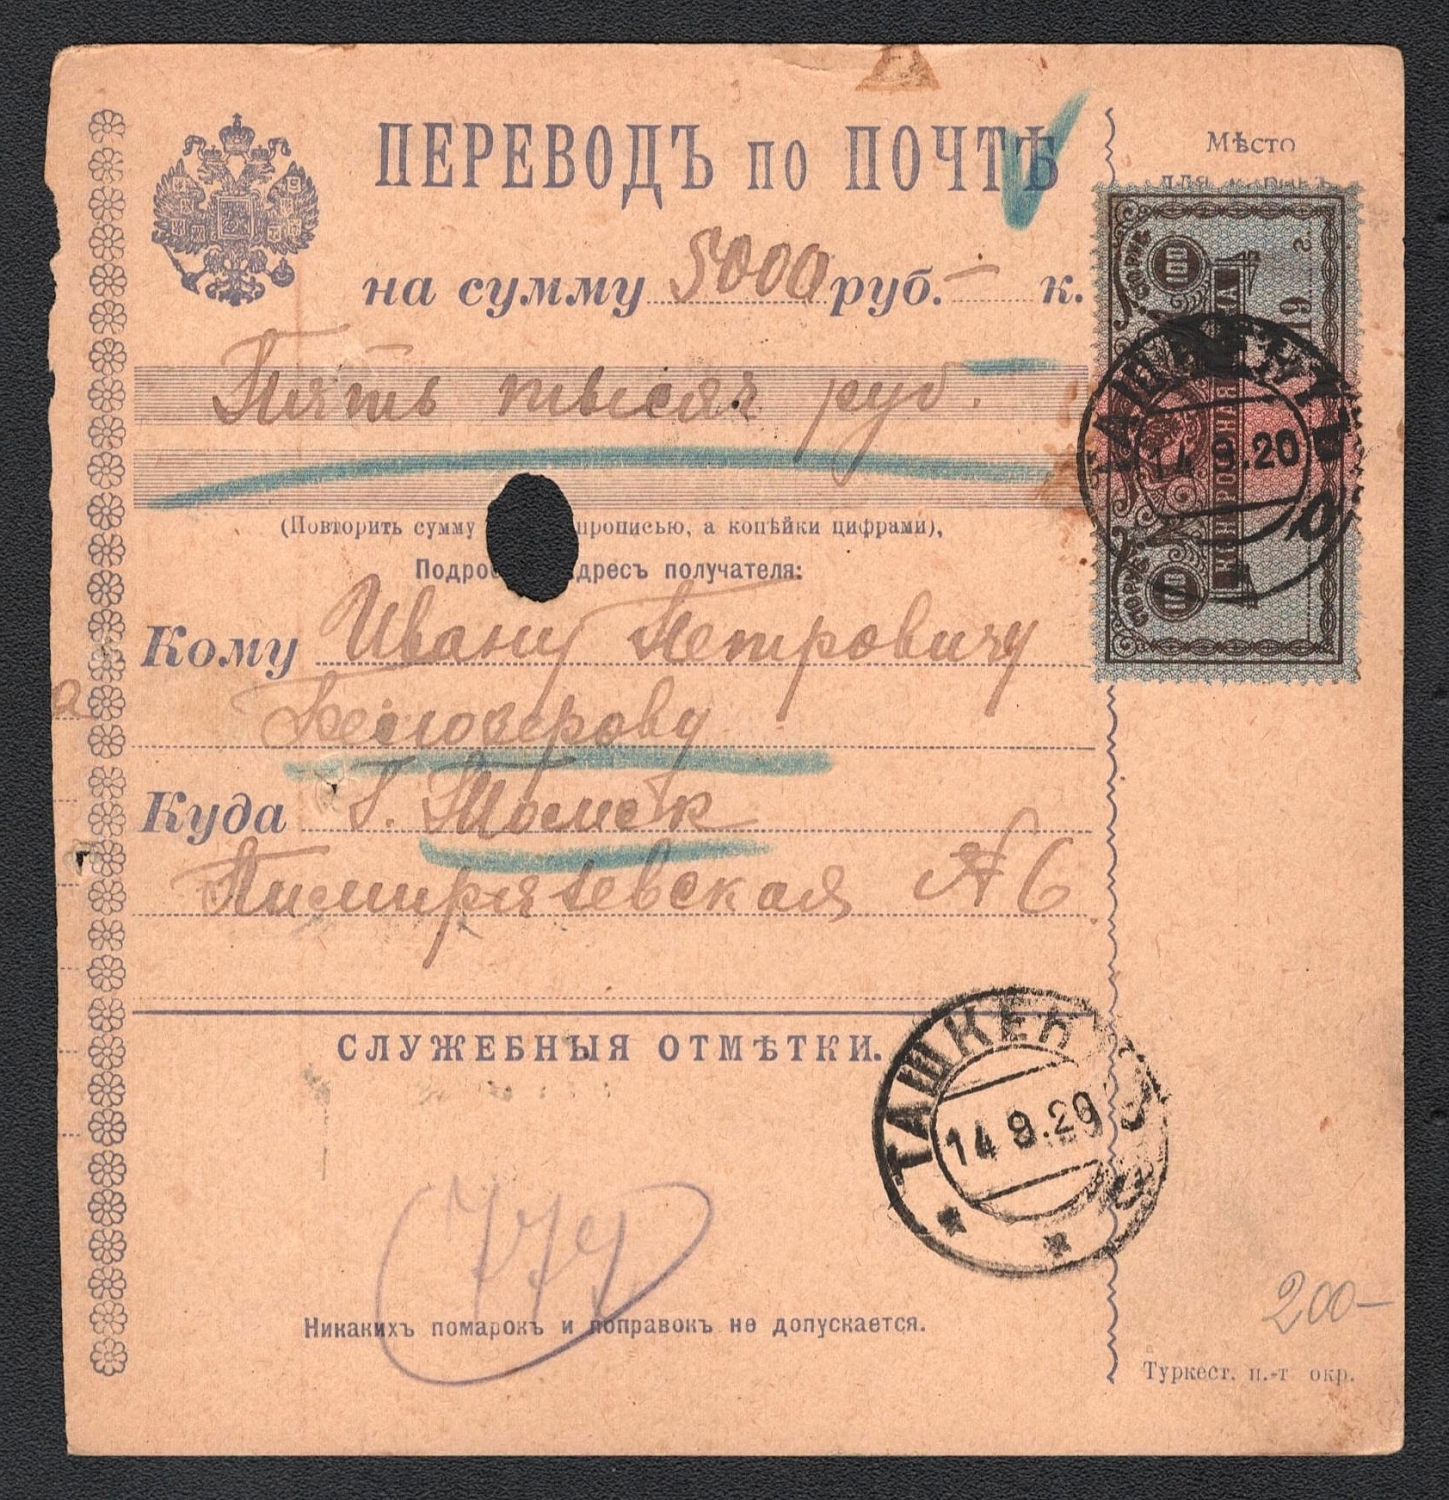 ПЕРЕВОДЪ по ПОЧТѢ
Мѣсто
для марокъ
на сумму 5000 руб. – к.
Пять тысяч руб.
(Повторить сумму прописью, а копѣйки цифрами),
Подроб адресъ получателя:
Кому Ивану Петровичу
Куда г. Томск
Тимирязевская № 6
СЛУЖЕБНЫЯ ОТМѢТКИ.
ТАШКЕН
14 9.20
100
100
СБОРУБ
КОНТРОЛЬНАЯ
14 .20
779
Никакихъ помарокъ и поправокъ не допускается.
200–
Туркест. п.-т окр.